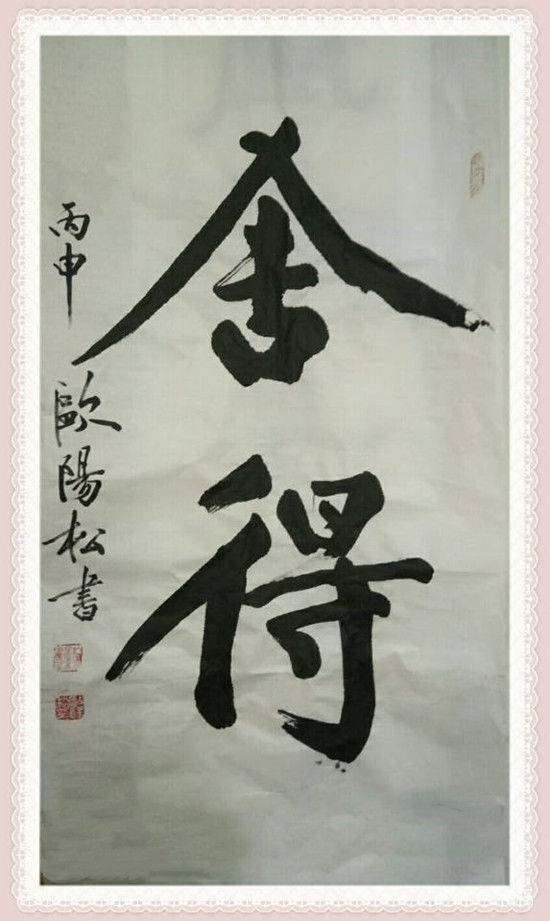 舍得
丙申
歐陽松書